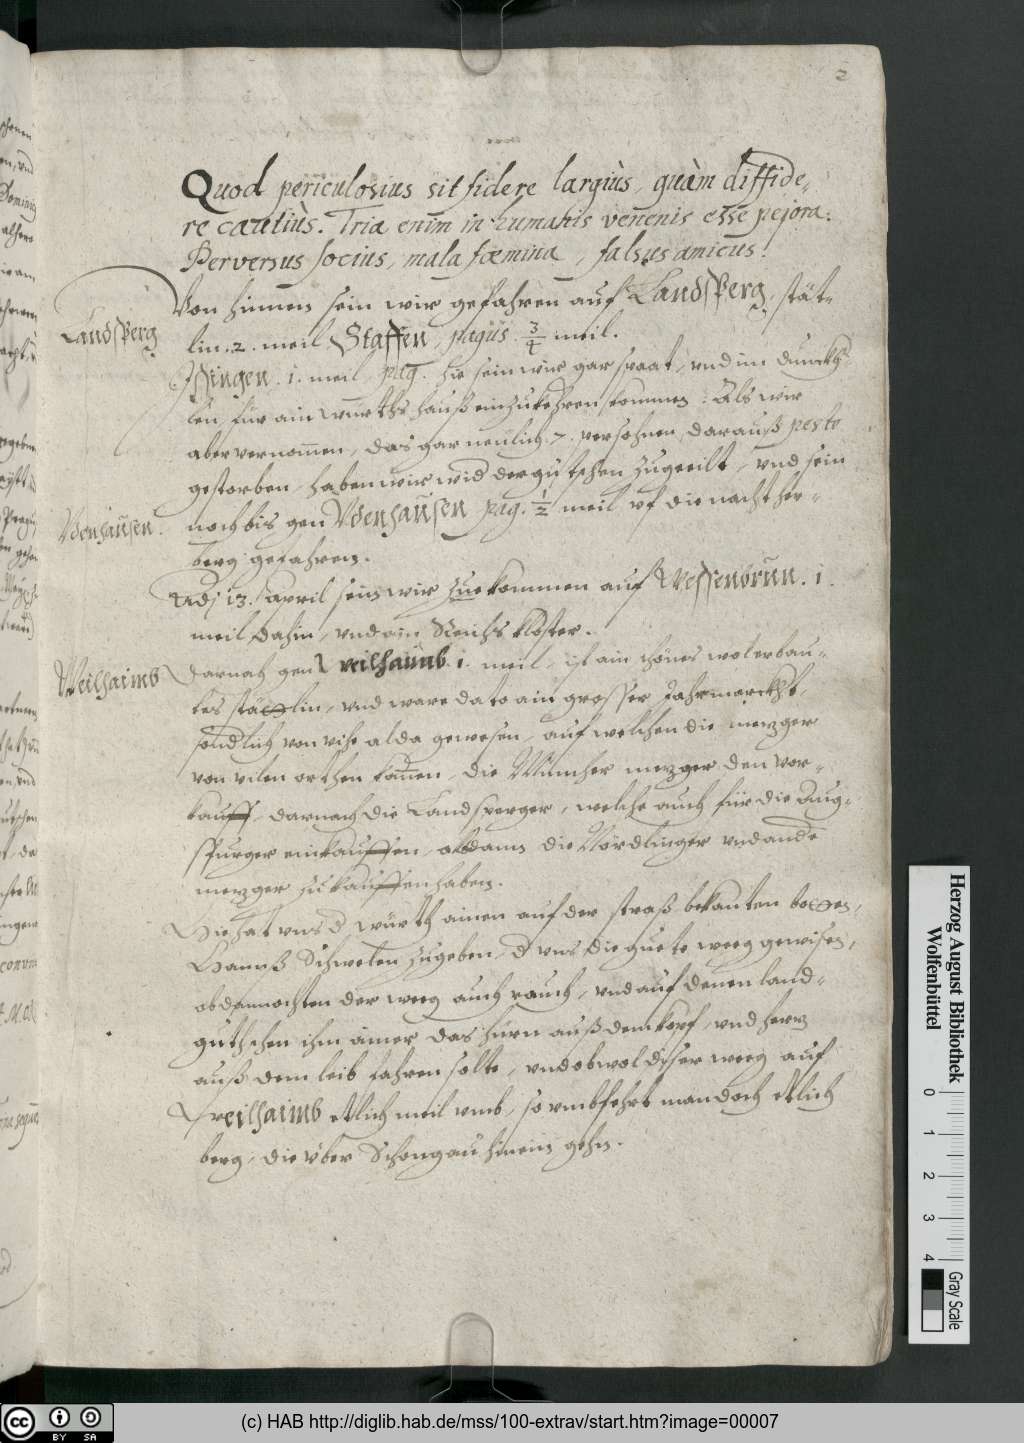 2
Quod periculosius sit fidere largiùs, quàm diffide-
re cautiùs. Tria enim in humanis venenis esse pejora:
Perversus socius, mala fœmina, falsus amicus.
Von hinnen sein wir gefahren auf Landsperg, stät-
Landsperg
lin. 2. meil Staffen, pagus. 3/4 meil.
Issingen. 1. meil, pag. hie sein wir gar spaat, vnd im dunckh-
len, für ain würths hauß einzukehren kommen: Als wir
aber vernomen, das gar neulich. 7. persohnen darauß peste
gestorben, haben wir wid der gutschen zugeeilt, vnd sein
noch bis gen Wdenhausen pag. 1/2 meil vf die nacht her-
Wdenhausen.
berg gefahren.
Adj 13. april sein wir zue kommen auf Wessenbrun. 1.
meil dahin, vnd ain Reichs kloster.
Darnach gen Weilhaimb. 1. meil, ist ain schönes wol erbau-
Weilhaimb
tes stätlin, vnd ware da to ain grosser Jahrmarckht,
sondlich von vihe alda gewesen, auf welchen die mezger
von vilen orthen kamen, die Müncher mezger den vor-
kauff, darnach die Landsperger, welche auch für die Aug-
spurger einkauffen, alsdann die Nördlinger vnd ande
mezger zu kauffen haben.
Hie hat vns d würth ainen auf der straß bekanten boten,
Hannß Schweten zugeben, d vns die guete weeg gewisen,
ob dannochten der weeg auch rauch, vnd auf denen land-
gutschen ihm ainer das hürn auß dem kopf, vnd herz
auß dem leib fahren solte, vnd obwol diser weeg auf
Weilhaimb etlich meil vmb, so vmbfehrt man doch etlich
berg, die vber Schongau hinein gehn.
Herzog August Bibliothek
Wolfenbüttel
0 1 2 3 4
Gray Scale
cc BY SA
(c) HAB http://diglib.hab.de/mss/100-extrav/start.htm?image=00007